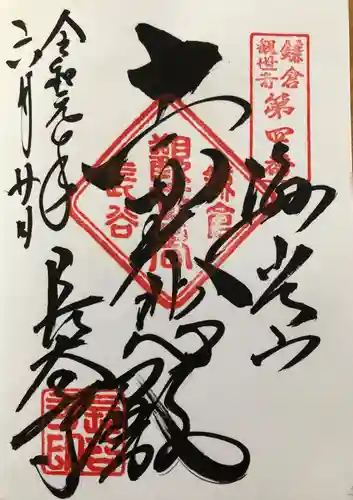 鎌倉
観世音
第四番
海光山
大悲殿
鎌倉
観世音
長谷
長谷寺
令和元年
六月廿日